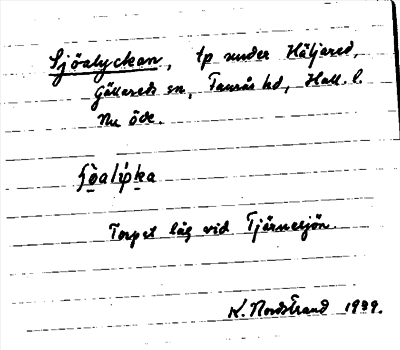 Sjöalyckan, tp under Häljared,
Gällareds sn, Faurås hd, Hall. l.
Nu öde.
Torpet låg vid Tjärnesjön.
K. Nordstrand 1939.